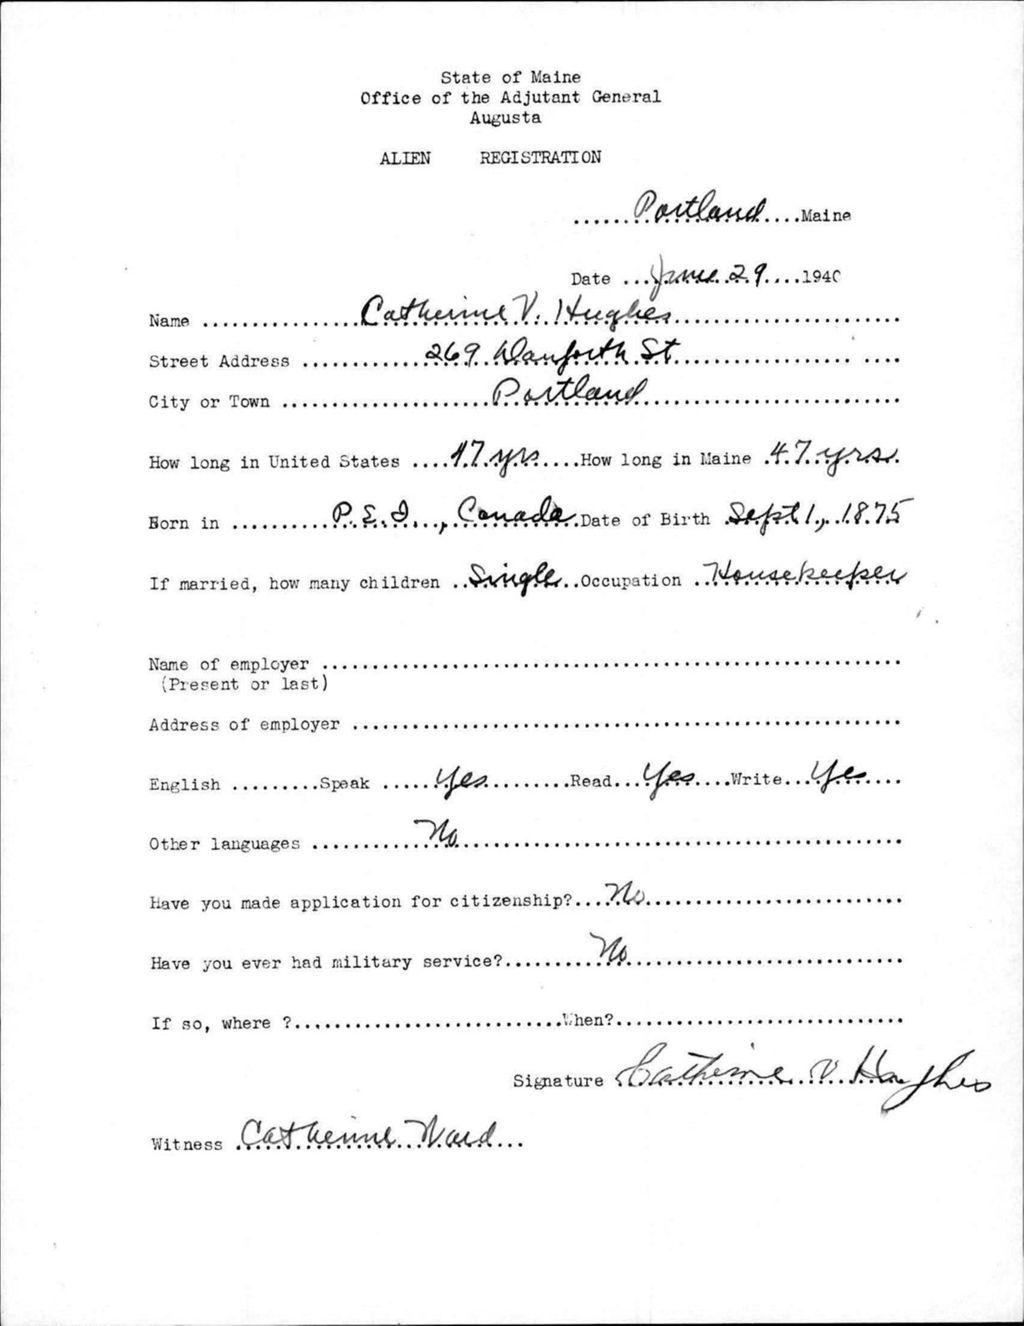 State of Maine
Office of the Adjutant General
Augusta
ALIEN REGISTRATION
......Portland....Maine
Date ...June 29....1940
Name ................Catherine V. Hughes........................
Street Address ............269 Danforth St.................. ....
City or Town .....................Portland..........................
How long in United States ....47 yrs.....How long in Maine .47 yrs.
Born in ..........P.E.I..., Canada.Date of Birth .Sept 1, 1875
If married, how many children ..Single..Occupation ..Housekeeper
Name of employer ..........................................................
(Present or last)
Address of employer .......................................................
English .........Speak ......Yes.........Read...Yes....Write...Yes....
Other languages ...........No.............................................
Have you made application for citizenship?....No..........................
Have you ever had military service?.........No............................
If so, where ?...........................When?.............................
Signature .Catherine V Hughes
Witness .Catherine Ward...